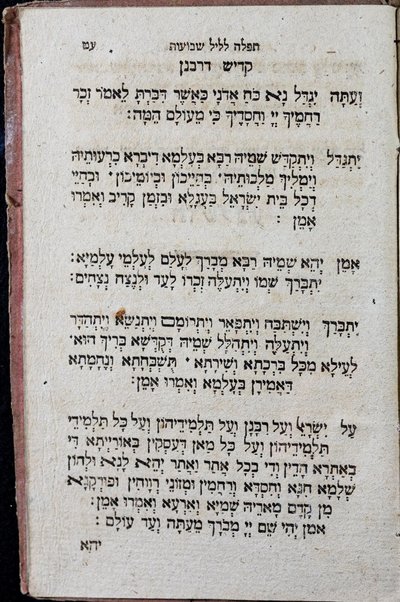 תפלה לליל שבועות עט
קדיש דרבנן
וְעַתָּה יִגְדַּל נָא כֹּחַ אֲדֹנָי כַּאֲשֶׁר דִּבַּרְתָּ לֵאמֹר זְכֹר
רַחֲמֶיךָ יְיָ וַחֲסָדֶיךָ כִּי מֵעוֹלָם הֵמָּה:
יִתְגַּדַּל וְיִתְקַדַּשׁ שְׁמֵיהּ רַבָּא בְּעָלְמָא דִּיבְרָא כִרְעוּתֵיהּ
וְיַמְלִיךְ מַלְכוּתֵיהּ· בְּחַיֵּיכוֹן וּבְיוֹמֵיכוֹן· וּבְחַיֵּי
דְכָל בֵּית יִשְׂרָאֵל בַּעֲגָלָא וּבִזְמַן קָרִיב וְאִמְרוּ
אָמֵן:
אָמֵן יְהֵא שְׁמֵיהּ רַבָּא מְבָרַךְ לְעָלַם לְעָלְמֵי עָלְמַיָּא:
יִתְבָּרַךְ שְׁמוֹ וְיִתְעַלֶּה זִכְרוֹ לָעַד וּלְנֶצַח נְצָחִים:
יִתְבָּרַךְ וְיִשְׁתַּבַּח וְיִתְפָּאֵר וְיִתְרוֹמַם וְיִתְנַשֵּׂא וְיִתְהַדָּר
וְיִתְעַלֶּה וְיִתְהַלָּל שְׁמֵיהּ דְּקֻדְשָׁא בְּרִיךְ הוּא·
לְעֵילָא מִכָּל בִּרְכָתָא וְשִׁירָתָא· תֻּשְׁבְּחָתָא וְנֶחֱמָתָא
דַּאֲמִירָן בְּעָלְמָא וְאִמְרוּ אָמֵן:
עַל יִשְׂרָאֵל וְעַל רַבָּנָן וְעַל תַּלְמִידֵיהוֹן וְעַל כָּל תַּלְמִידֵי
תַלְמִידֵיהוֹן וְעַל כָּל מָאן דְּעָסְקִין בְּאוֹרַיְיתָא דִּי
בְאַתְרָא הָדֵין וְדִי בְכָל אֲתַר וַאֲתַר יְהֵא לָנָא וּלְהוֹן
שְׁלָמָא חִנָּא וְחִסְדָּא וְרַחֲמִין וּמְזוֹנֵי רְוִיחִין וּפוּרְקָנָא
מִן קֳדָם מָארֵיהּ שְׁמַיָּא וְאַרְעָא וְאִמְרוּ אָמֵן:
אמן יְהִי שֵׁם יְיָ מְבֹרָךְ מֵעַתָּה וְעַד עוֹלָם:
יהא